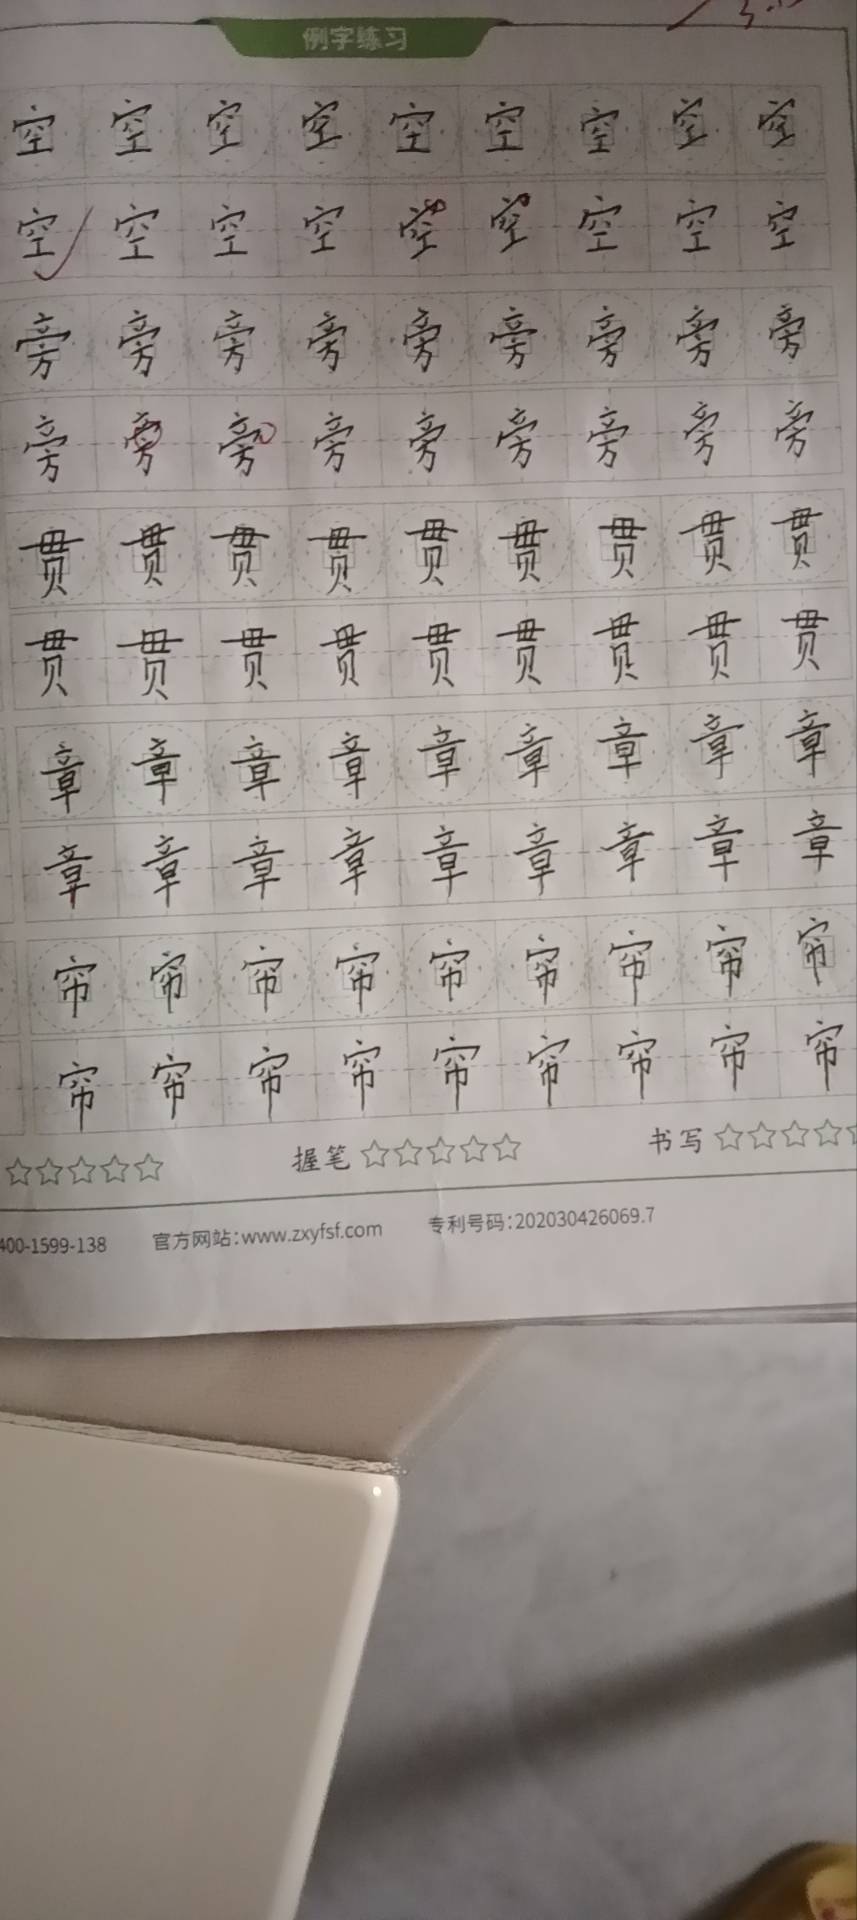 例字练习
空 空 空 空 空 空 空 空 空
空 空 空 空 空 空 空 空 空
旁 旁 旁 旁 旁 旁 旁 旁 旁
旁 旁 旁 旁 旁 旁 旁 旁 旁
贯 贯 贯 贯 贯 贯 贯 贯 贯
贯 贯 贯 贯 贯 贯 贯 贯 贯
章 章 章 章 章 章 章 章 章
章 章 章 章 章 章 章 章 章
帘 帘 帘 帘 帘 帘 帘 帘 帘
帘 帘 帘 帘 帘 帘 帘 帘 帘
☆☆☆☆☆ 握笔 ☆☆☆☆☆ 书写 ☆☆☆☆☆
400-1599-138 官方网站:www.zxyfsf.com 专利号码:202030426069.7